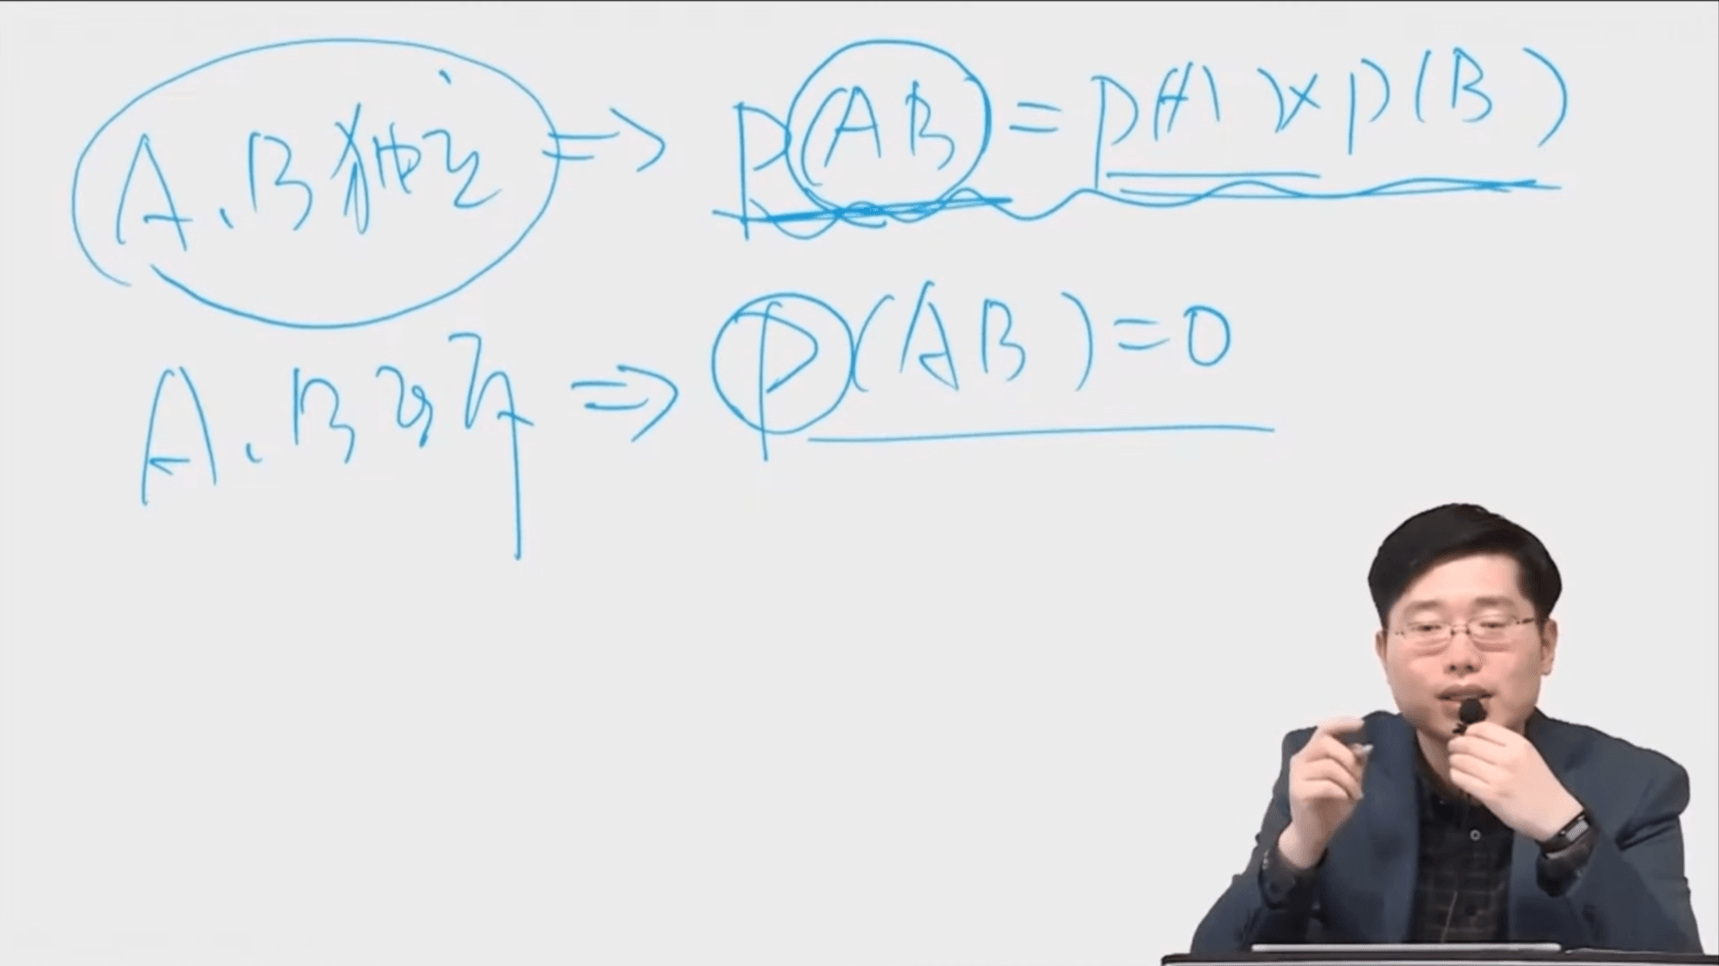 A、B独立 ⇒ P(AB) = P(A) × P(B)
A、B互斥 ⇒ P(AB) = 0